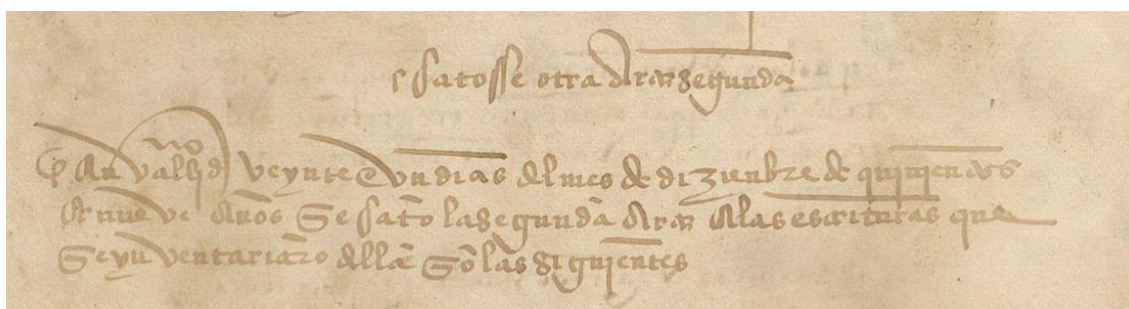 sacosse otra arca segunda
En valljd veynte e un dias del mes de dizienbre de quinientos
e nueve años Se saco la segunda arca e las escrituras que
Se ynventariaro della So las siguientes